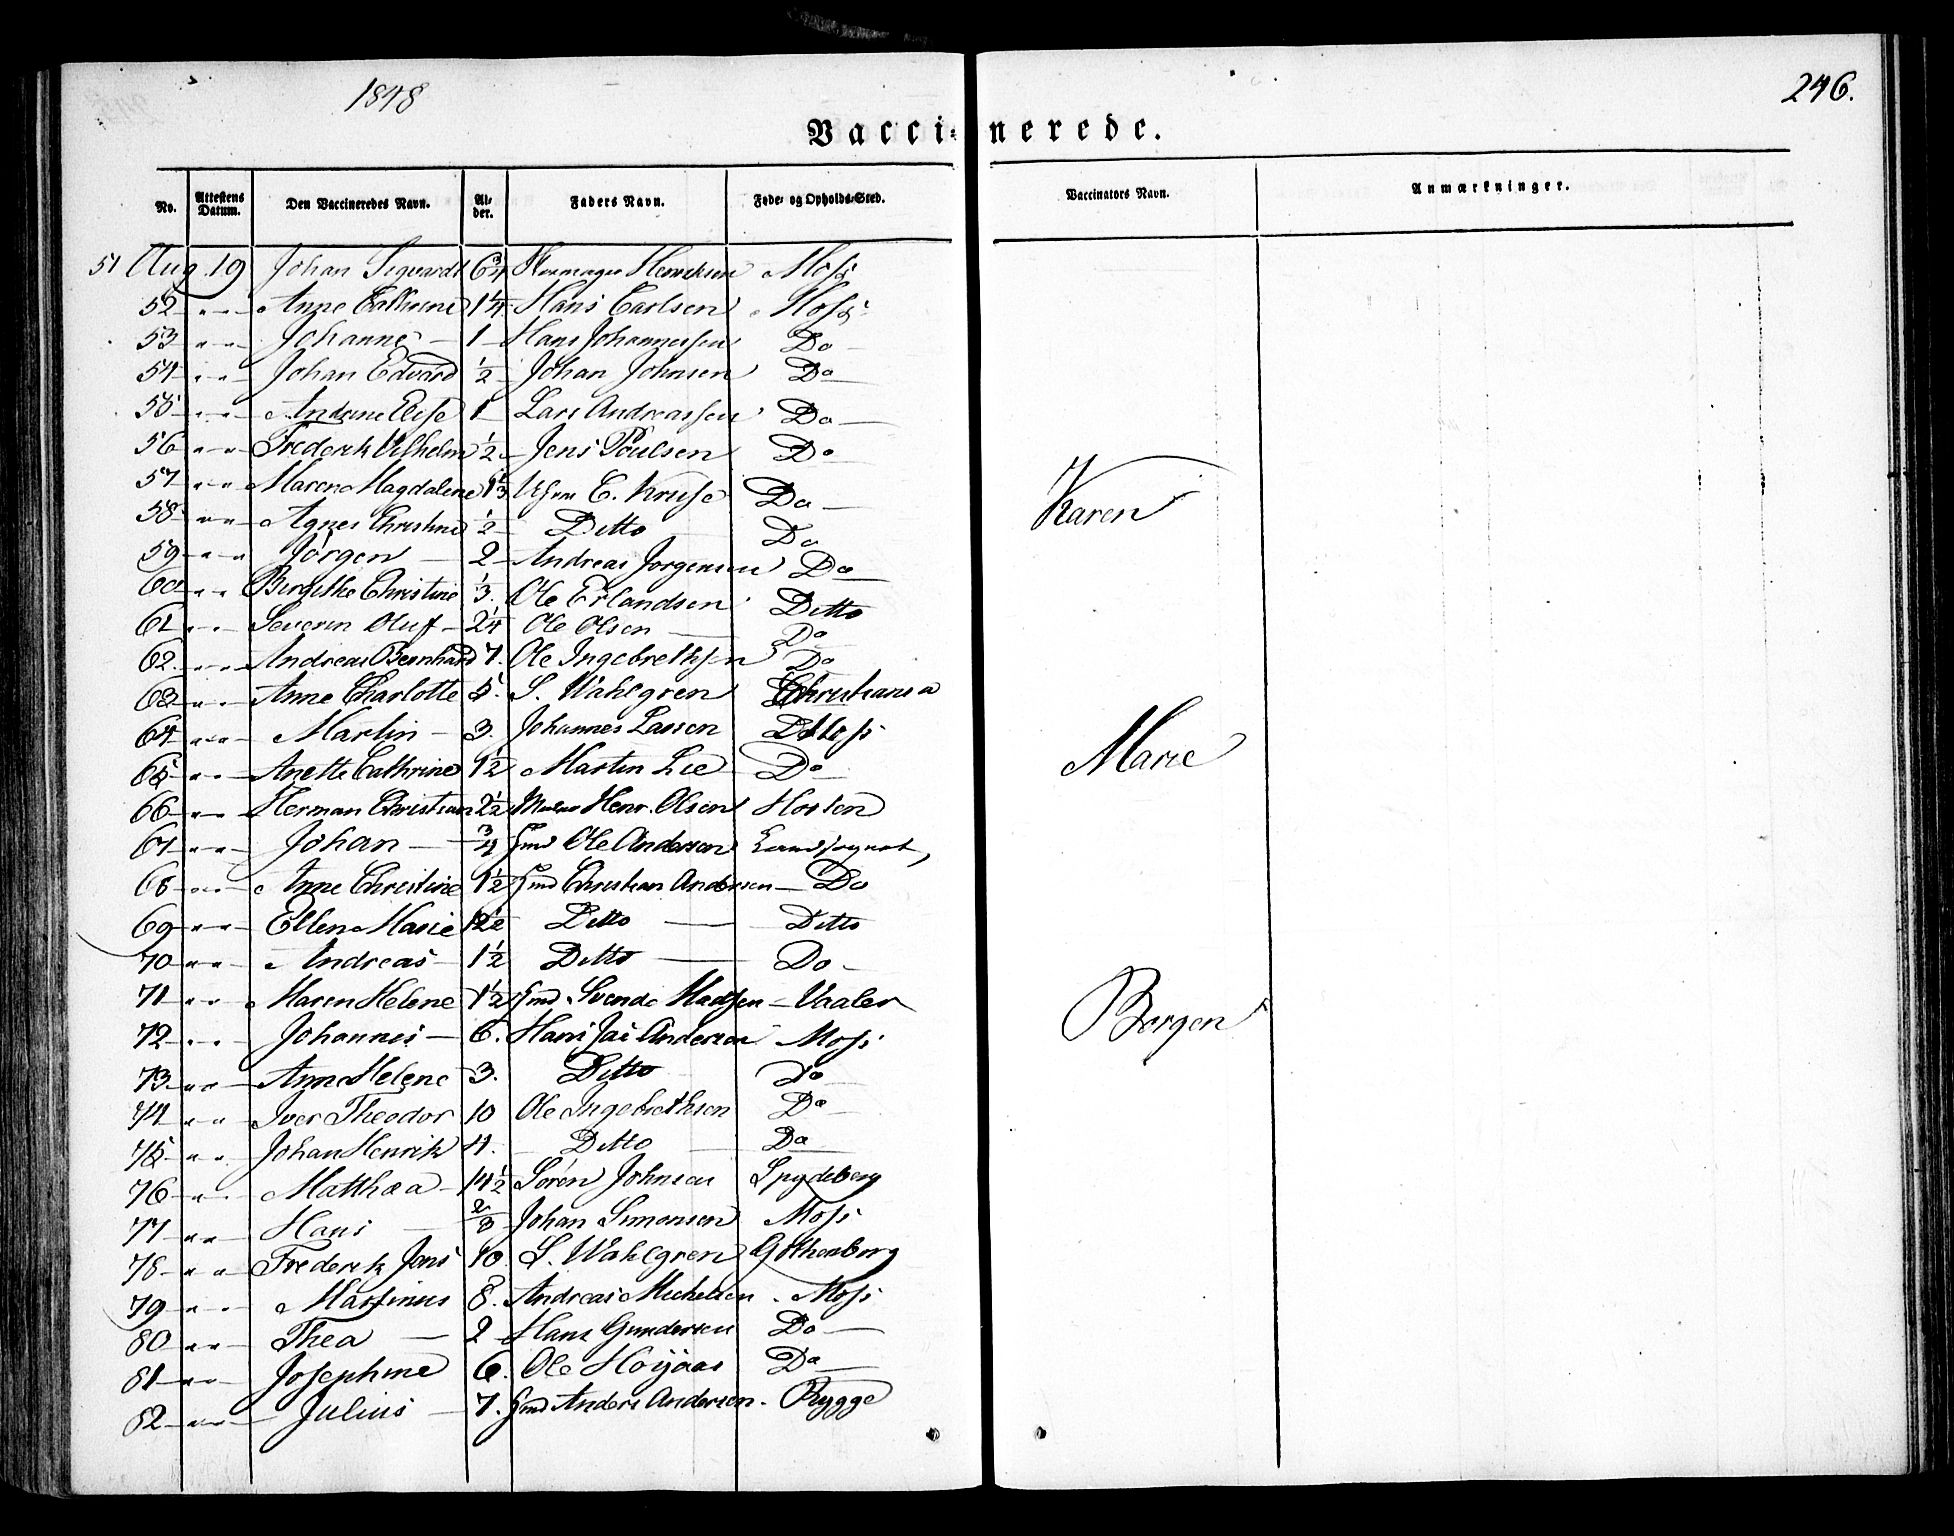 1848
246.
Vacci=nerede.
No. Attestens Datum. Den Vaccineredes Navn. Al-der. Faders Navn. Føde- og Opholds-Sted. Vaccinators Navn. Anmærkninger.
51 Aug. 19 Johan Sigvardt 6 3/4 Henriksen Moss
52 " " Anne Cathrine 1 1/4 Hans Carlsen Moss
53 " " Johanne 1 Hans Johannessen Do
54 " " Johan Edvard 1/2 Johan Johnsen Do
55 " " Andrine Elise 1 Lars Andreassen Do
56 " " Frederik Vilhelm 1/2 Jens Poulsen Do
57 " " Maren Magdalene 1 1/3 C. Kruse Do
58 " " Agnes Christine 1/2 Ditto Do
59 " " Jörgen 2 Andreas Jorgensen Do
60 " " Birgithe Christine 1/3. Ole Erlandsen Ditto
61 " " Severin Oluf 2 1/4 Ole Olsen Do
62 " " Andreas Bernhard 7. Ole Ingebrethsen Do
63 " " Anne Charlotte 5. S. Wahlgren Christiania
64 " " Martin 3. Johannes Lassen Moss
65 " " Anette Cathrine 1 1/2 Martin Lie Do
66 " " Herman Christian 2 1/2 Henr. Olsen Horten
67 " " Johan 3/4 Gmd Ole Andersen Landsognet,
68 " " Anne Christine 1 1/2 Gmd Christian Andersen Do
69 " " Ellen Marie Ditto Ditto
70 " " Andreas 1 1/2 Ditto Do
71 " " Maren Helene 1 1/2 Gmd Svend Madsen Vaaler
72 " " Johannes 6. Hans Jac Andersen Moss
73 " " Anne Helene 3. Ditto Do
74 " " Iver Theodor 10 Ole Ingebrethsen Do
75 " " Johan Henrik 4. Ditto Do
76 " " Matthea 14 1/2 Sörén Johnsen Spydeberg
77 " " Hans 2/3 Johan Simonsen Moss
78 " " Frederik Jens 10 S. Wahlgren Gothenborg
79 " " Martinus 8. Andreas Michelsen Moss
80 " " Thea 2 Hans Gundersen Do
81 " " Josephine 6. Ole Höyaas Do
82 " " Julius 7. Gmd Anders Andersen Rygge
Karen
Marie
Borgen